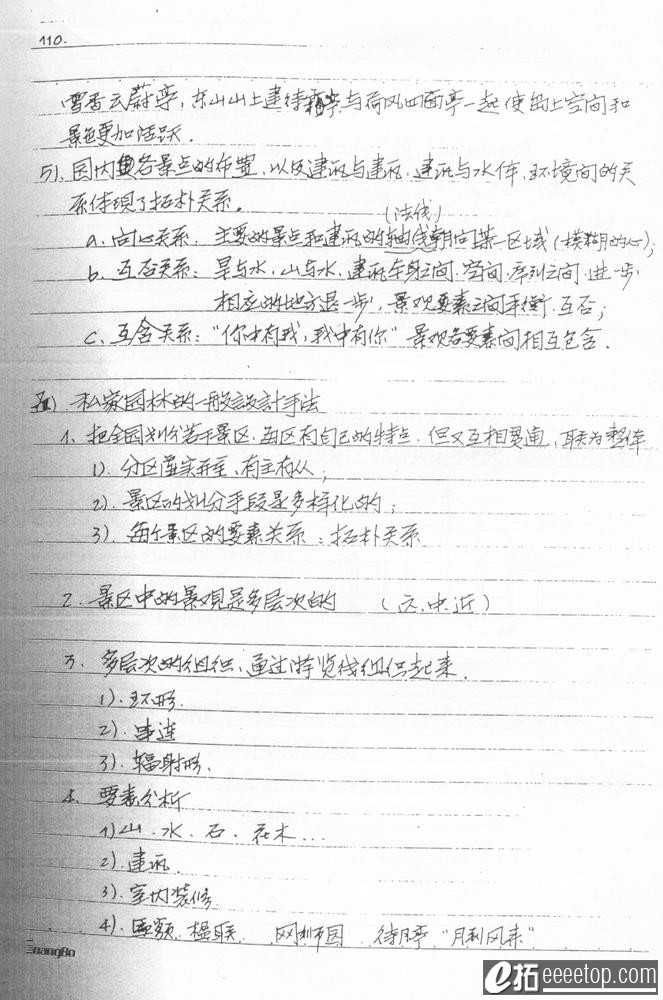 110.
雪香云蔚亭,东山山上建待霜亭与荷风四面亭一起使岛上空间和
景色更加活跃.
5).园内各景点的布置,以及建筑与建筑,建筑与水体,环境间的关
系体现了拓朴关系。
(法线)
a. 向心关系,主要的景点和建筑的轴线朝向某一区域(模糊的心);
b. 互否关系:旱与水,山与水,建筑本身之间.空间.序列之间.进一步
相应的地方退一步,景观要素之间平衡.互否;
c. 互含关系:“你中有我,我中有你”景观各要素间相互包含.
五).私家园林的一般設計手法
1. 把全园划分若干景区.每区有自己的特点.但又互相贯通,联为整体
1).分区虚实并重,有主有从;
2).景区的划分手段是多样化的;
3).每个景区的要素关系:拓朴关系
2.景区中的景观是多层次的 (远.中.近)
3. 多层次的组织,通过游览线组织起来.
1).环形.
2).串连
3).辐射形.
4. 要素分析
1)山.水.石.花木...
2).建筑.
3).室内装修.
4).匾额.楹联. 网师园 待月亭“月到风来”
GuangBo
e拓eeeetop.com